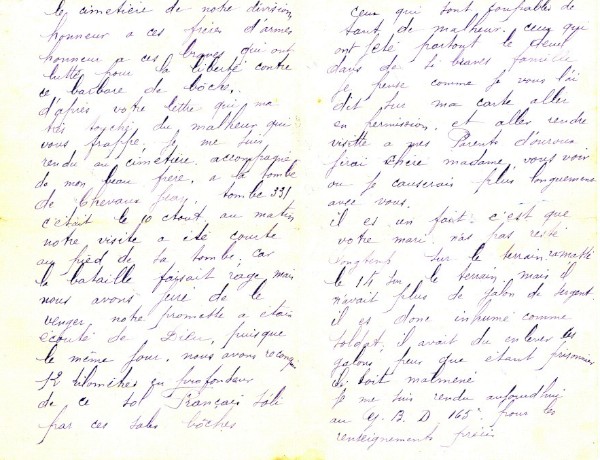 le cimetière de notre division
honneur a ces frères d'armes
honneur a ces braves qui ont
luttés pour la liberté contre
ce barbare de bôchs.
d'après votre lettre qui ma
très touché du malheur qui
vous frappe, Je me suis
rendu au cimetière accompagné
de mon beau frère, a la tombe
de Chevaux Jean, tombe 331
c'était le 10 Aout, au matin
notre visite a été courte
au pied de sa tombe, car
la bataille faisait rage, mais
nous avons juré de le
venger. notre promette a étais
écouté de Dieu, puisque
le même jour, nous avons reconquis
12 kilomètres en profondeur
de ce sol Français sali
par ces sales bôches
ceux qui sont coupables de
tant de malheur. ceux qui
ont jeté partout le deuil
dans de si braves famille
je pense comme je vous l'ai
dit sur ma carte aller
en permission, et aller rendre
visitte a mes Parents d'ouroux
J'irai chère madame, vous voir
ou je causerais plus longuement
avec vous.
il es un fait: c'est que
votre mari, n'as pas resté
longtems sur le terrain, ramassé
le 14 sur le terrain, mais il
n'avait plus de galon de sergent.
il es donc inhumé comme
soldat, il avait du enlever ses
galons, peur que étant prisonnier
il soit malmené
Je me suis rendu aujourd'hui
au G. B. D. 165, pour les
renseignements précis